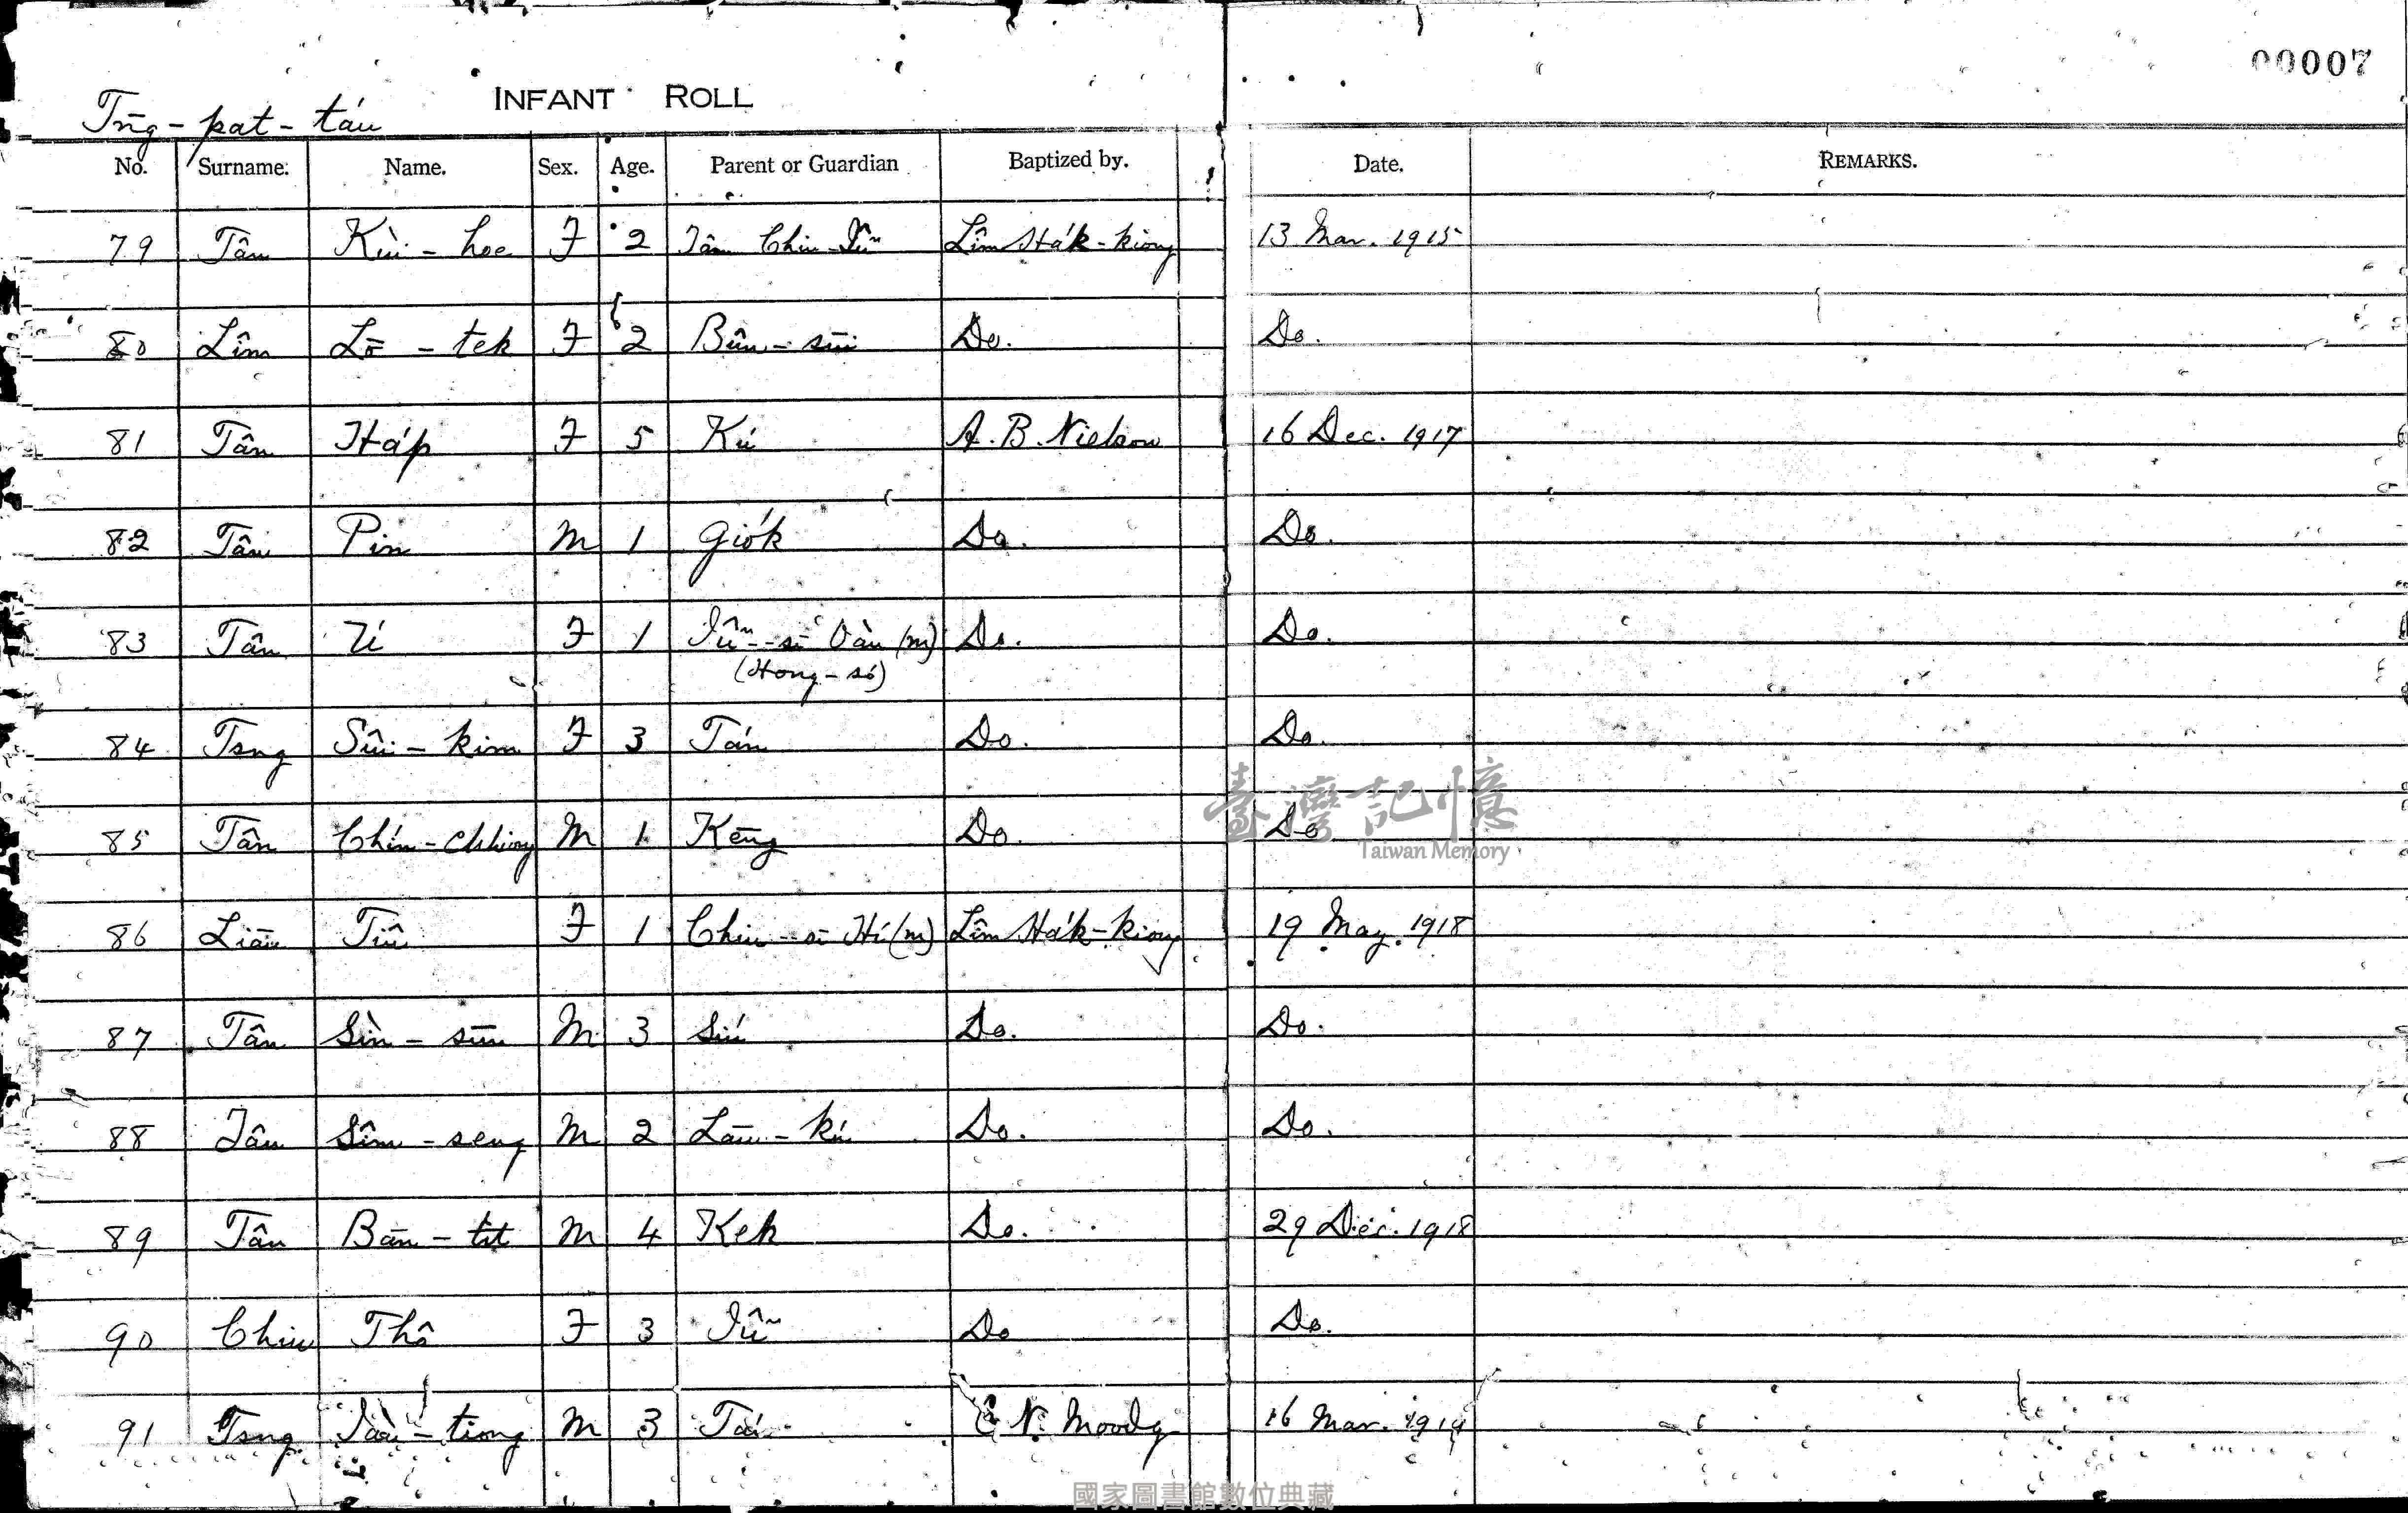 00007
INFANT ROLL
Tn̄g-pat-táu
No. Surname. Name. Sex. Age. Parent or Guardian Baptized by. Date. REMARKS.
79 Tân Kùi-hoe F 2 Tân Chiu-Iûⁿ Lîm Ha̍k-kiong 13 Mar. 1915
80 Lîm Lō-tek F 2 Bûn-sūi Do. Do.
81 Tân Ha̍p F 5 Kú A. B. Nielson 16 Dec. 1917
82 Tân Pin M 1 Gio̍k Do. Do.
83 Tân Lí F 1 Iûⁿ-sī Oàn (m) Do. Do.
(Hong-só)
84 Tsng Sûi-kim F 3 Tán Do. Do.
85 Tân Chín-chhiong M 1 Kēng Do. Do
86 Liāu Tiû F 1 Chiu-sī Hí (m) Lîm Ha̍k-kiong 19 May. 1918
87 Tân Sìn-sūn M 3 Siú Do. Do.
88 Tân Sîm-seng M 2 Lāu-kú Do. Do.
89 Tân Bān-tit M 4 Kek Do. 29 Dec. 1918
90 Chiu Thô F 3 Iûⁿ Do Do.
91 Tsng tiong M 3 Tán C. N. Moody 16 Mar. 1919
臺灣記憶
Taiwan Memory
國家圖書館數位典藏